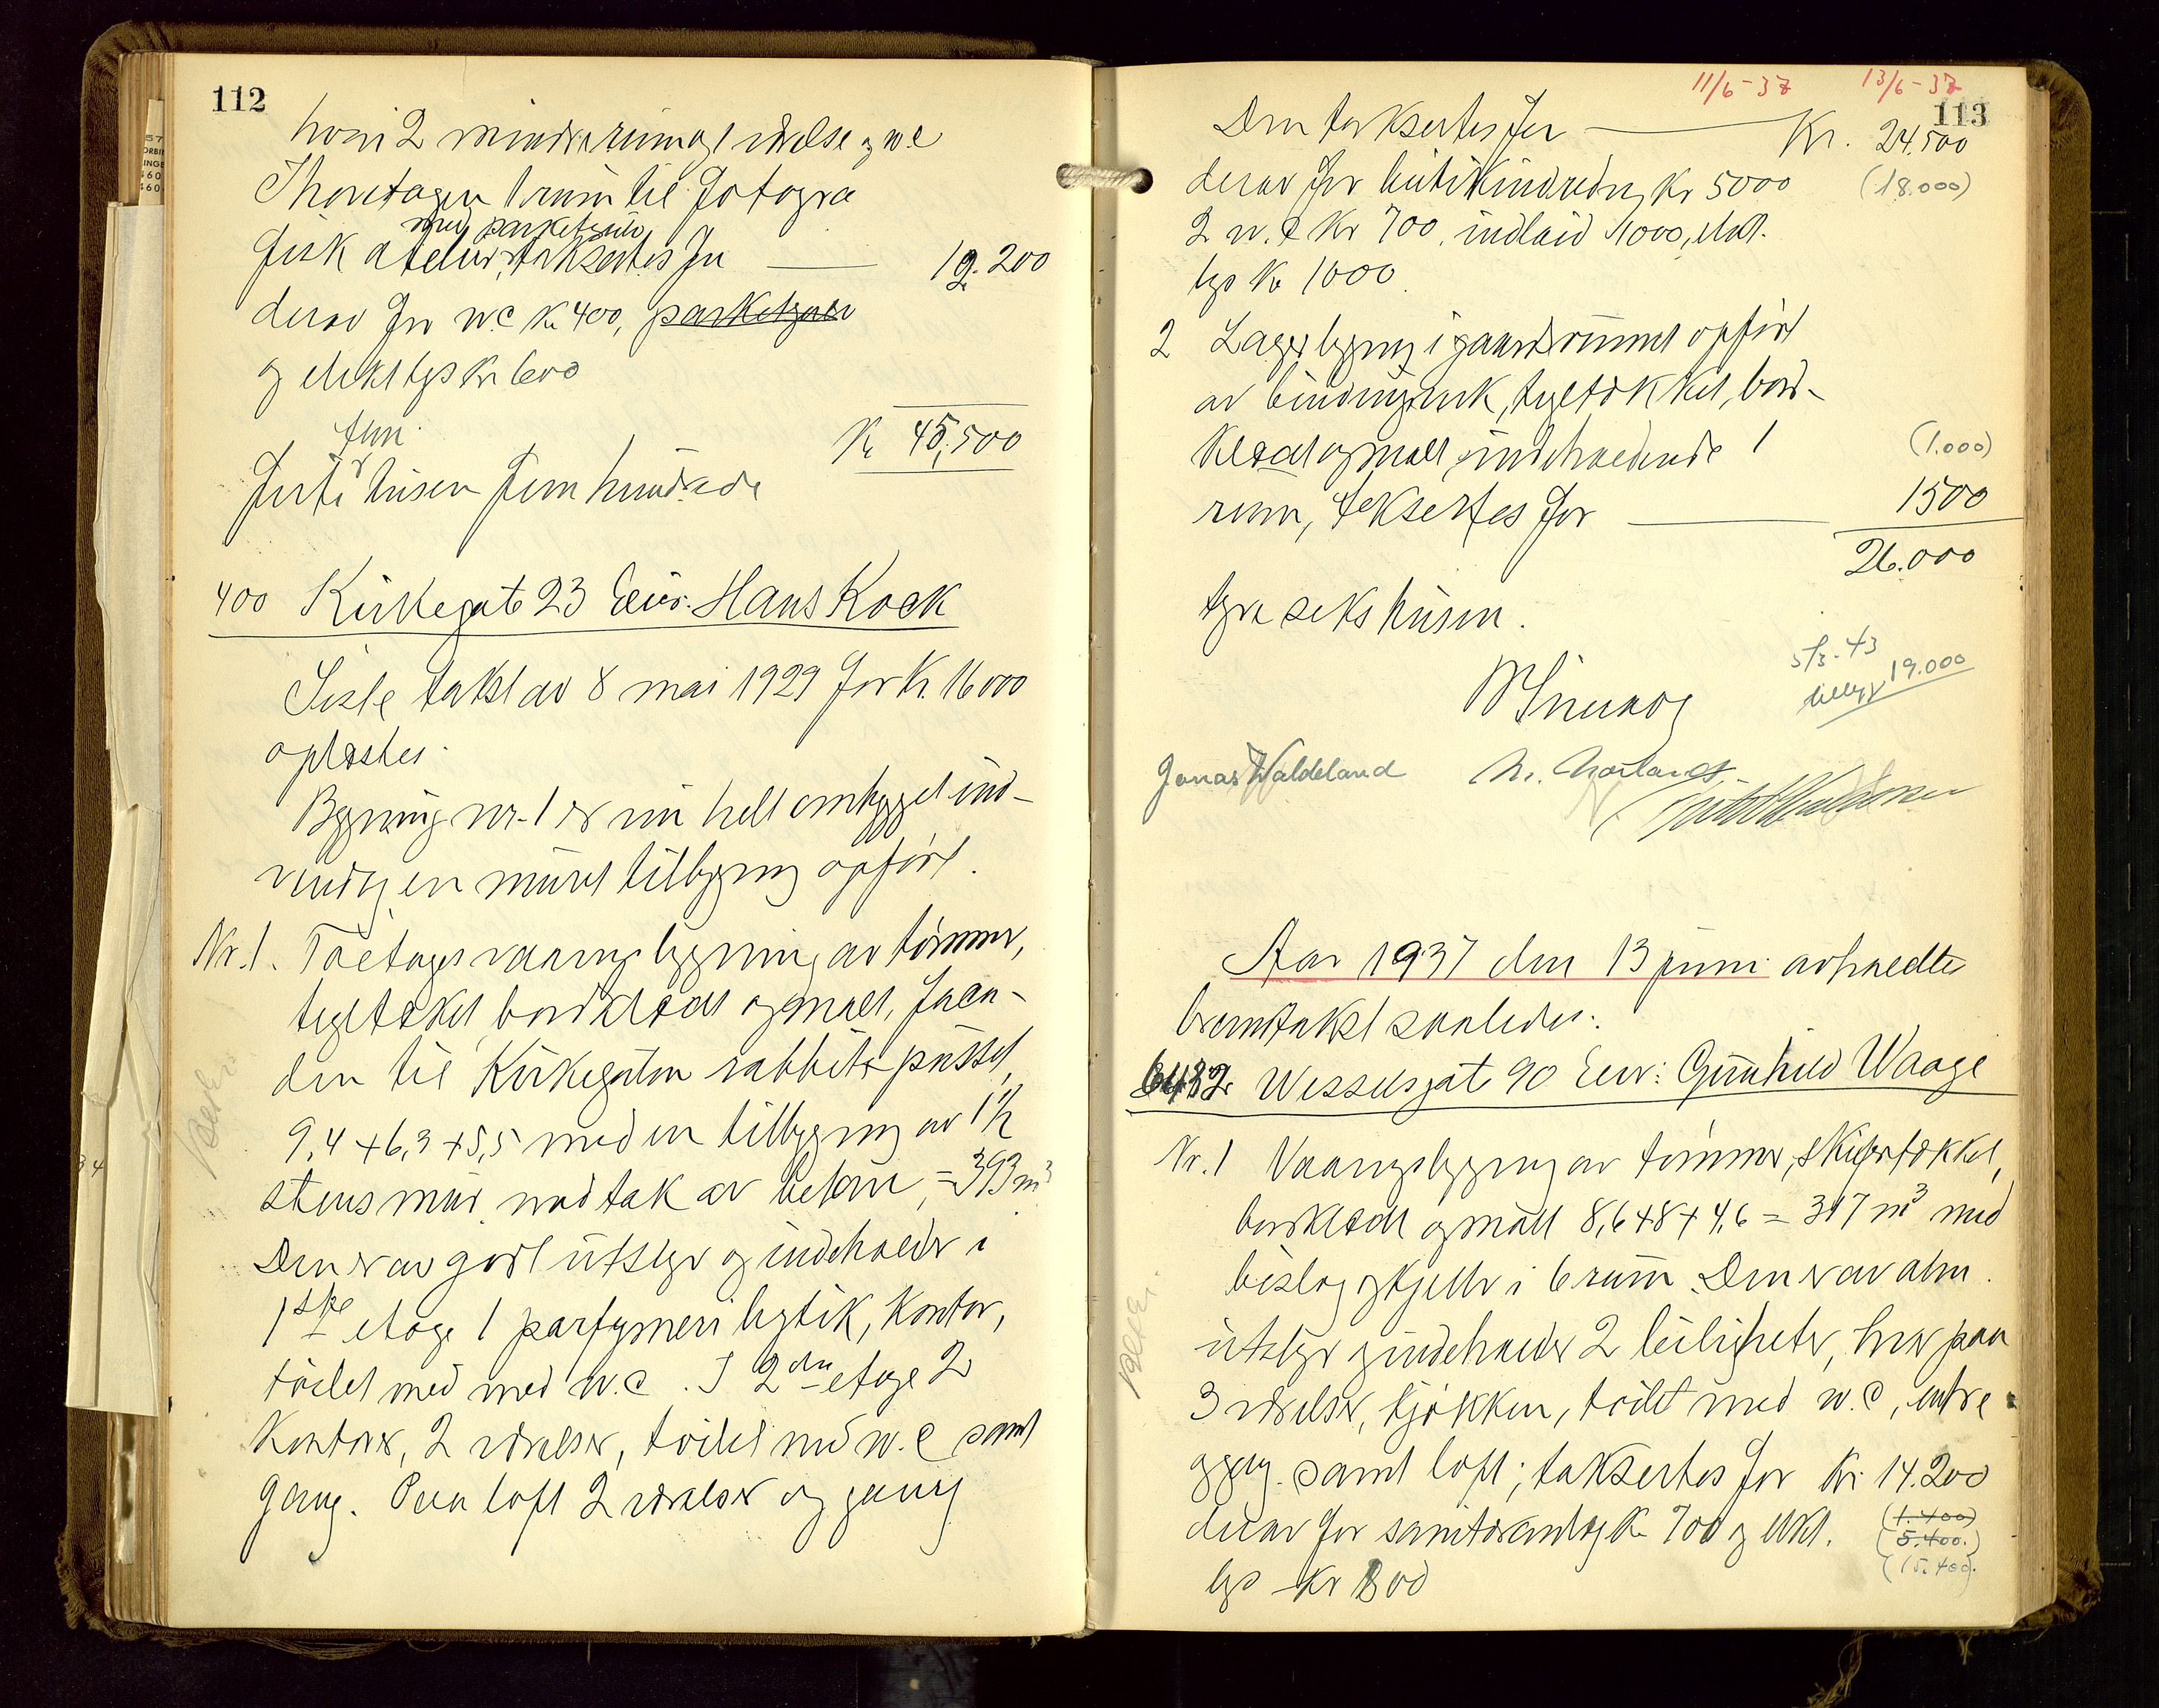 112
hvori 2 mindre rum og 1 værelse og w.c
I hovetagen 1 rum til fotogra
med parketgulv
fisk atelier, taksertes for 19.200
derav for w.c kr 400, parketgulv
og elekt lys kr 600
Kr 45.500
fem
førti tusen fem hundrede
400 Kirkegate 23 Eier: Hans Kock
Siste takst av 8 mai 1929 for kr. 16000
opløstes.
Bygning nr. 1 er nu helt ombygget ind-
vendig en muret tilbygning opført.
Nr. 1. Toetages vaaningsbygning av tømmer,
tegltækket, bordklædt og malt, faca-
den til Kirkegaten rabbitz pusset,
9,4 + 6,3 + 5,5 med en tilbygning av 1½
stens mur med tak av betong, = 393 m³
Den er av godt utstyr og indeholder i
1ste etage 1 parfymeri bytik, kontor,
toilet med med w.c. I 2den etage 2
kontorer, 2 værelser, toilet med w.c samt
gang. Paa loft 2 værelser og gang
11/6-37 13/6-37
113
Den taksertes for Kr. 24.500
derav for butikindredn. kr 5000 (18.000)
2 w.c kr 700, indlaid 1000, elekt.
lys kr 1000.
2 Lagerbygning i gaardsrummet opført
av bindingsverk, tegltækket, bord-
klædt og malt, indeholdende 1 (1.000)
rum, taksertes for 1500
26.000
tyve seks tusen.
5/3-43
tillegg 19.000
Jonas Waldeland
Aar 1937 den 13 juni avholdtes
branntakst saaledes:
Wesselsgt 90 Eier: Gunhild Waage
Nr. 1 Vaaningsbygning av tømmer, skifertækket,
bordklædt og malt 8,6+8+4,6 = 317 m³ med
bislag og kjeller i 6 rum. Den er av alm.
utstyr og indeholder 2 leiligheter, hver paa
3 værelser, kjøkken, toilet med w.c, entre
og gang. samt loft; taksertes for kr. 14.200
derav for sanitæranlæg kr. 700 og elekt. (1.400)
(5.400.)
lys kr 800 (15.400).